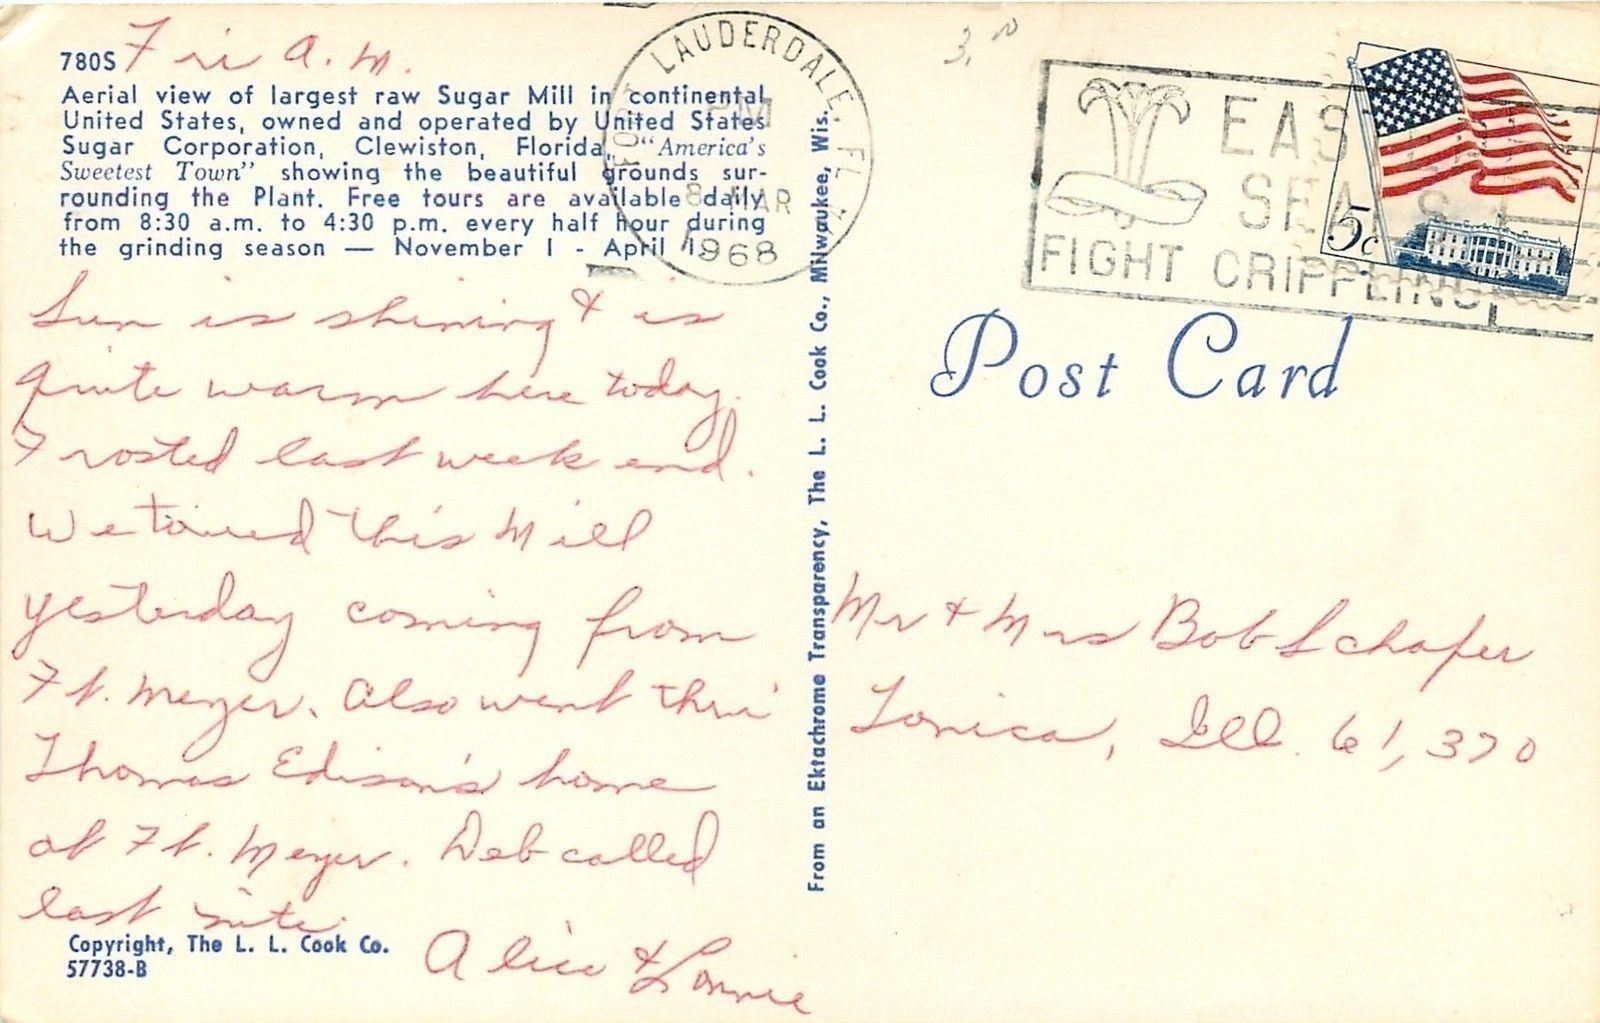 780S Fri A.M.
Aerial view of largest raw Sugar Mill in continental
United States, owned and operated by United States
Sugar Corporation, Clewiston, Florida, "America's
Sweetest Town" showing the beautiful grounds sur-
rounding the Plant. Free tours are available daily
from 8:30 a.m. to 4:30 p.m. every half hour during
the grinding season — November 1 - April 15.
Sun is shining & is
quite warm here today.
Frosted last week end.
We toured this Mill
yesterday coming from
Ft. Meyer. Also went thru'
Thomas Edison's home
at Ft. Meyer. Deb called
last nite.
Alice & Lonnie
Copyright, The L. L. Cook Co.
57738-B
From an Ektachrome Transparency, The L. L. Cook Co., Milwaukee, Wis.
LAUDERDALE, FL
PM
8 MAR
1968
3.00
EASTER
SEALS
FIGHT CRIPPLING
5c
Post Card
Mr & Mrs Bob Schafer
Tonica, Ill. 61,370